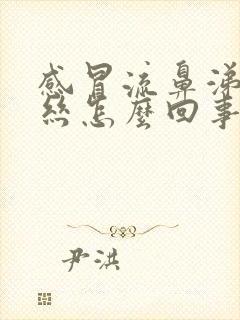 感冒流鼻涕
丝怎麼回事
尹洪